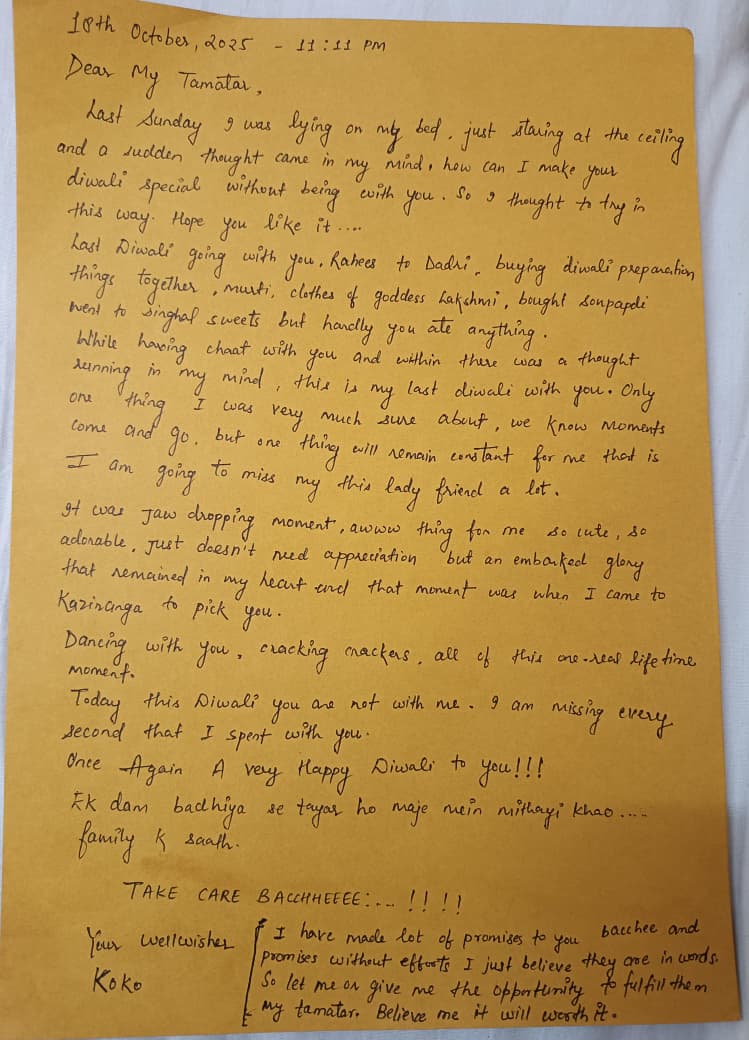 18th October, 2025 - 11:11 PM
Dear My Tamatar,
Last Sunday I was lying on my bed, just staring at the ceiling
and a sudden thought came in my mind, how can I make your
diwali special without being with you. So I thought to try in
this way. Hope you like it ....
Last Diwali going with you, Rahees to Dadri, buying diwali preparation
things together, murti, clothes of goddess Lakshmi, bought sonpapdi
went to Singhal sweets but hardly you ate anything.
While having chaat with you and within there was a thought
running in my mind, this is my last diwali with you. Only
one thing I was very much sure about, we know moments
come and go, but one thing will remain constant for me that is
I am going to miss my this lady friend a lot.
It was Jaw dropping moment, awww thing for me so cute, so
adorable, just doesn't need appreciation but an embarked glory
that remained in my heart and that moment was when I came to
Kaziranga to pick you.
Dancing with you, cracking crackers, all of this one-real life time
moment.
Today this Diwali you are not with me. I am missing every
second that I spent with you.
Once Again A very Happy Diwali to you!!!
Ek dam badhiya se tayar ho maje mein mithayi khao ....
family k saath.
TAKE CARE BACCHHEEEE:... !!!!
Your wellwisher
Koko
I have made lot of promises to you bacchee and
promises without efforts I just believe they are in words.
So let me or give me the opportunity to fulfill them
My tamatar. Believe me it will worth it.